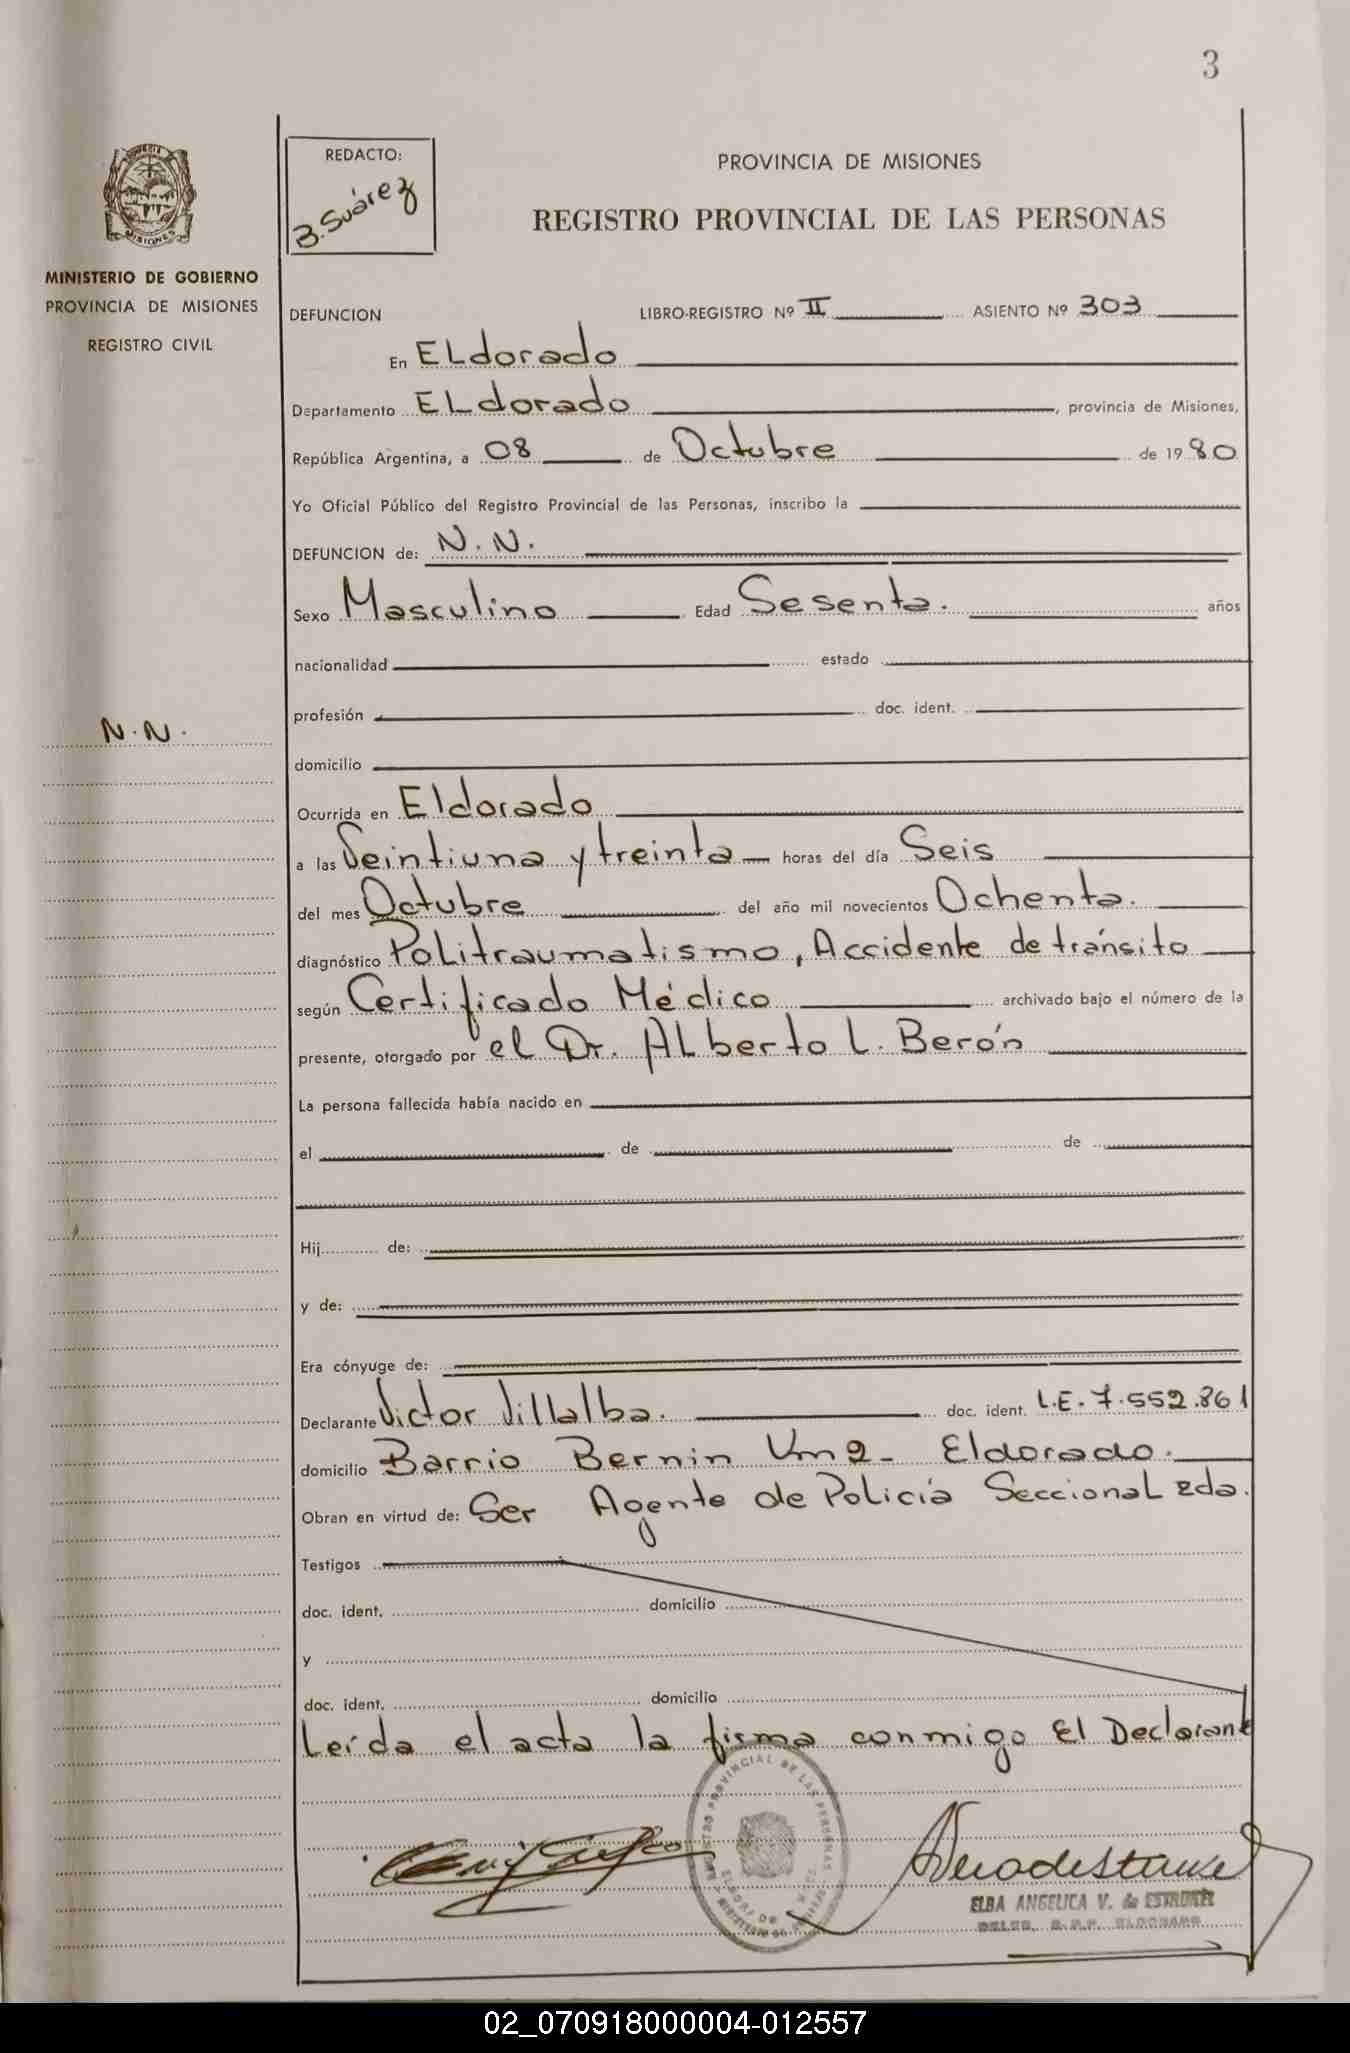 3
REDACTO:
B. Suárez
PROVINCIA DE MISIONES
REGISTRO PROVINCIAL DE LAS PERSONAS
MINISTERIO DE GOBIERNO
PROVINCIA DE MISIONES
REGISTRO CIVIL
DEFUNCION LIBRO-REGISTRO Nº II ASIENTO Nº 303
En ELdorado
Departamento ELdorado, provincia de Misiones,
República Argentina, a 08 de Octubre de 1980
Yo Oficial Público del Registro Provincial de las Personas, inscribo la
DEFUNCION de: N.N.
Sexo Masculino Edad Sesenta. años
nacionalidad estado
profesión doc. ident.
N.N.
domicilio
Ocurrida en Eldorado
a las Veintiuna y treinta horas del día Seis
del mes Octubre del año mil novecientos Ochenta.
diagnóstico Politraumatismo, Accidente de tránsito
según Certificado Médico archivado bajo el número de la
presente, otorgado por el Dr. ALberto L. Berón
La persona fallecida había nacido en
el de de
Hij de:
y de:
Era cónyuge de:
Declarante Victor Villalba. doc. ident. L.E. 7.552.861
domicilio Barrio Bernin Km 2- Eldorado.
Obran en virtud de: Ser Agente de Policía Seccional 2da.
Testigos
doc. ident. domicilio
y
doc. ident. domicilio
Leída el acta la firma conmigo El Declarante
ELBA ANGELICA V. de
02_070918000004-012557